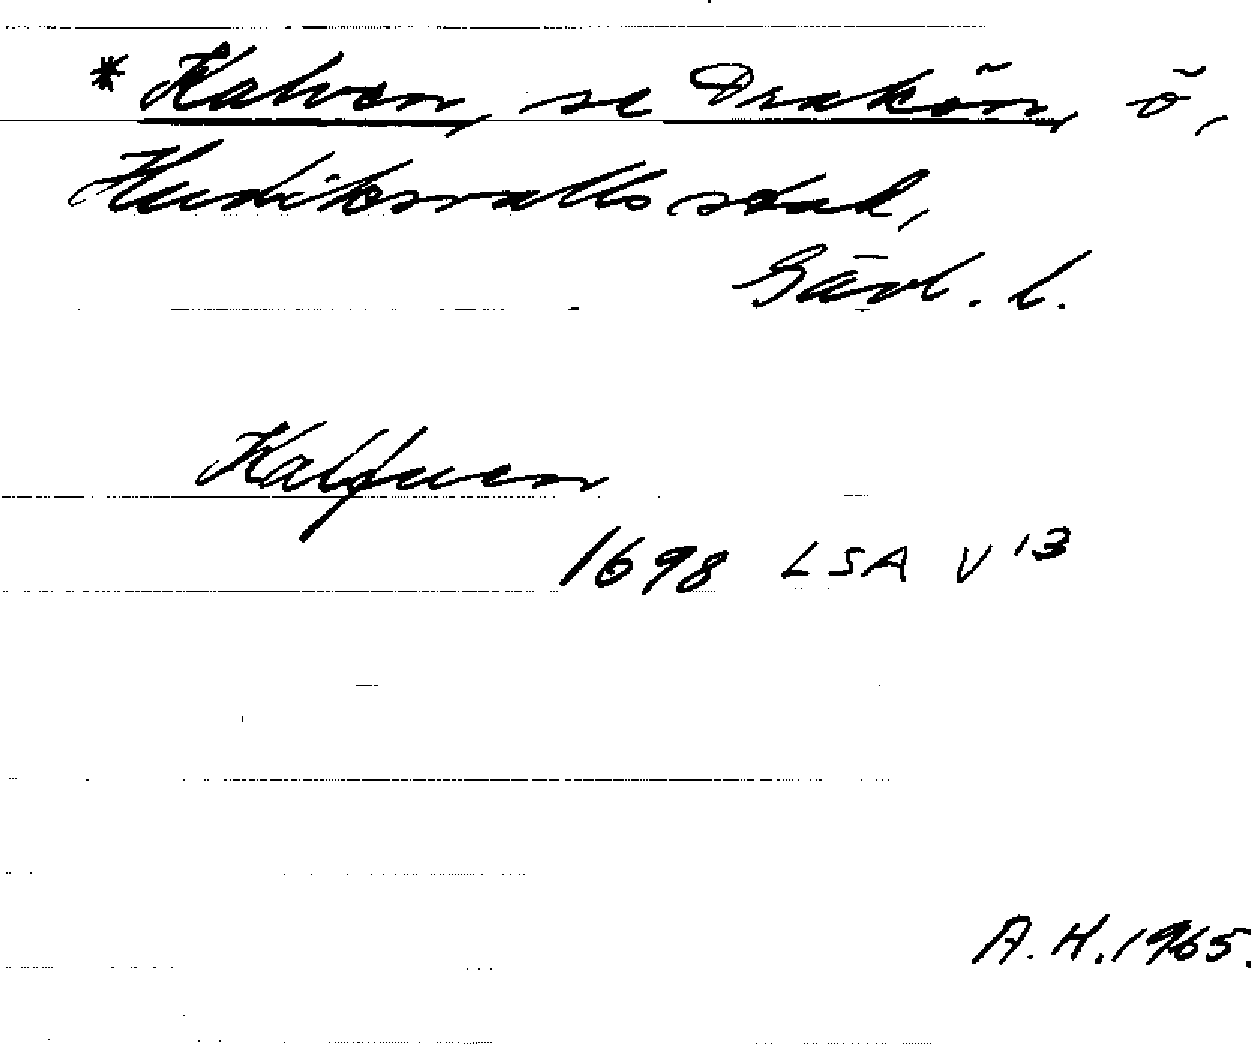 * Kalven, se Drakön, ö,
Hudiksvalls stad,
Gävl. l.
Kalfuen
1698 LSA V 13
A. H. 1965.